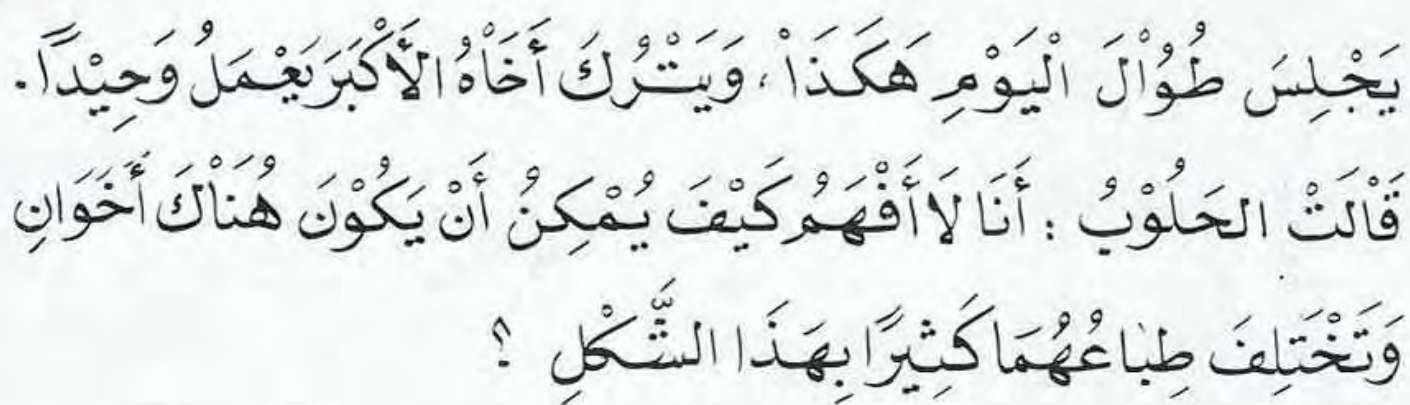 يَجْلِسَ طُوُاْلَ الْيَوْمِ هَكَذَاْ، وَيَتْرُكَ أَخَاْهُ الأَكْبَرَ يَعْمَلُ وَحِيْدَاً.
قَاْلَتْ الحَلُوْبُ : أَنَا لاَ أَفْهَمُ كَيْفَ يُمْكِنُ أَنْ يَكُوْنَ هُنَاْكَ أَخَوَانِ
وَتَخْتَلِفَ طِبَاعُهُمَا كَثِيْرًا بِهَذَا الشَّكْلِ ؟